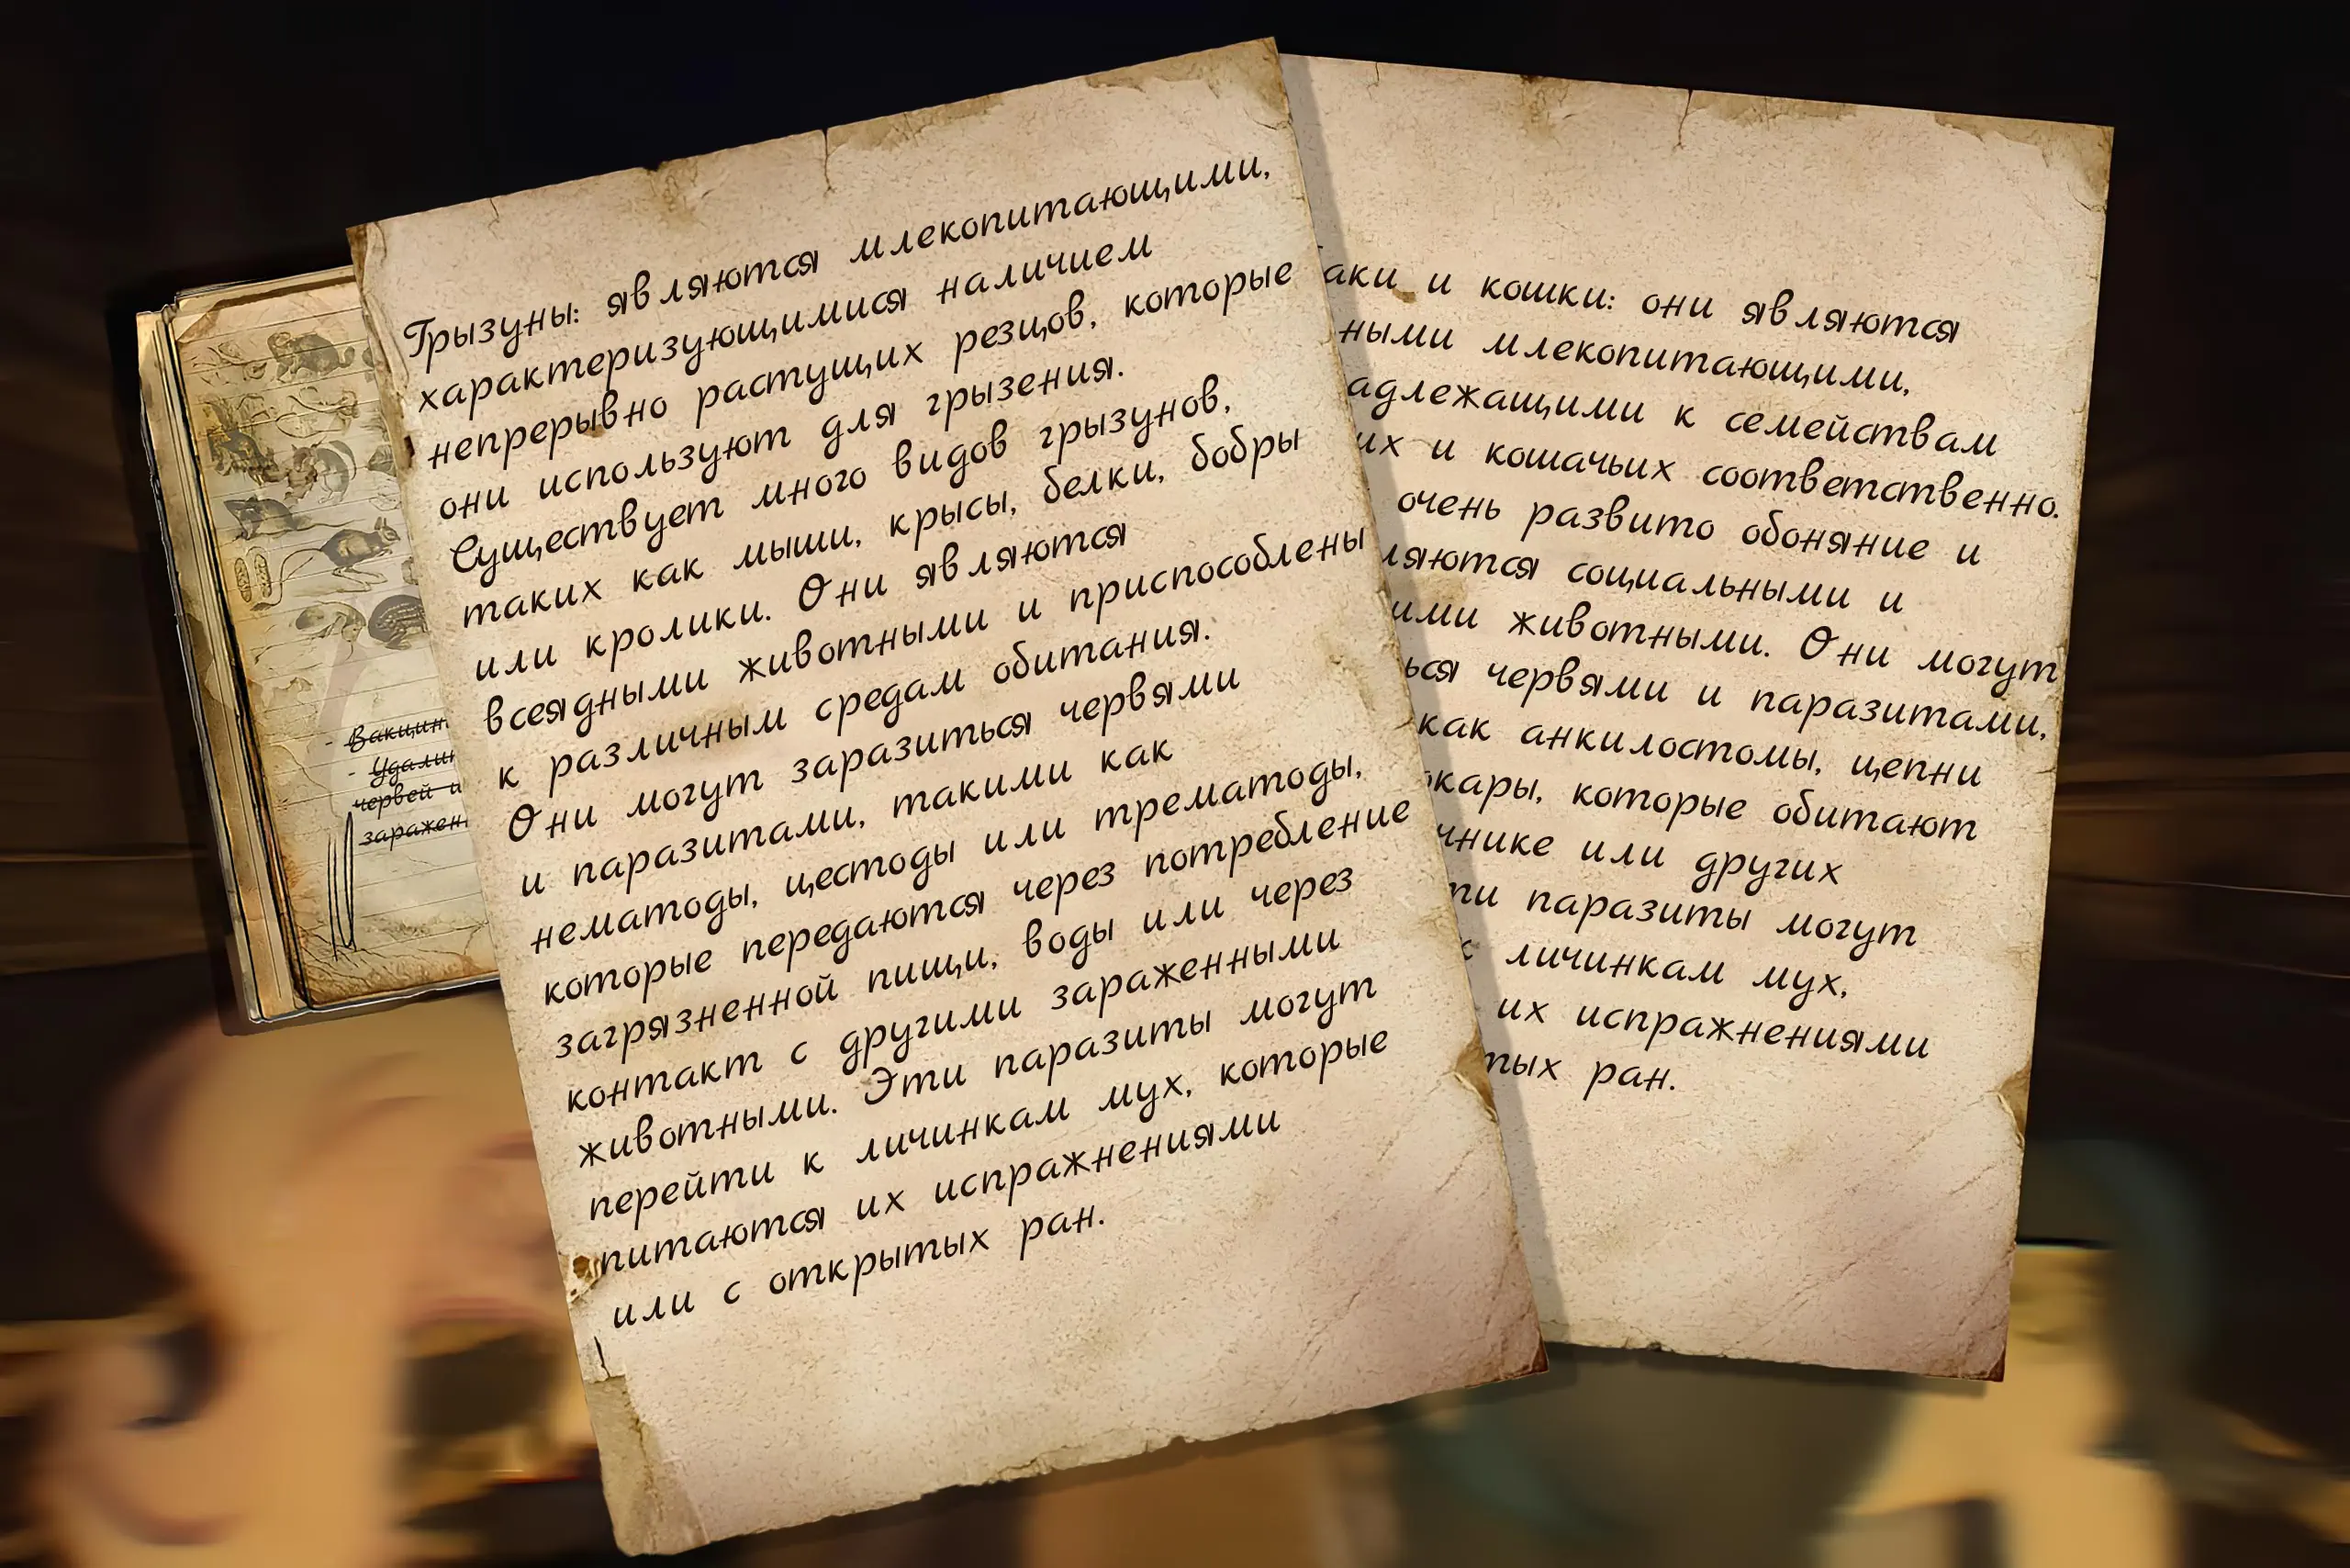 Грызуны: являются млекопитающими,
характеризующимися наличием
непрерывно растущих резцов, которые
они используют для грызения.
Существует много видов грызунов,
таких как мыши, крысы, белки, бобры
или кролики. Они являются
всеядными животными и приспособлены
к различным средам обитания.
Они могут заразиться червями
и паразитами, такими как
нематоды, цестоды или трематоды,
которые передаются через потребление
загрязненной пищи, воды или через
контакт с другими зараженными
животными. Эти паразиты могут
перейти к личинкам мух, которые
питаются их испражнениями
или с открытых ран.
аки и кошки: они являются
ными млекопитающими,
адлежащими к семействам
их и кошачьих соответственно.
очень развито обоняние и
ляются социальными и
ими животными. Они могут
ься червями и паразитами,
как анкилостомы, цепни
кары, которые обитают
чнике или других
ти паразиты могут
к личинкам мух,
их испражнениями
тых ран.
- Вакцин
- Удали
червей и
заражен